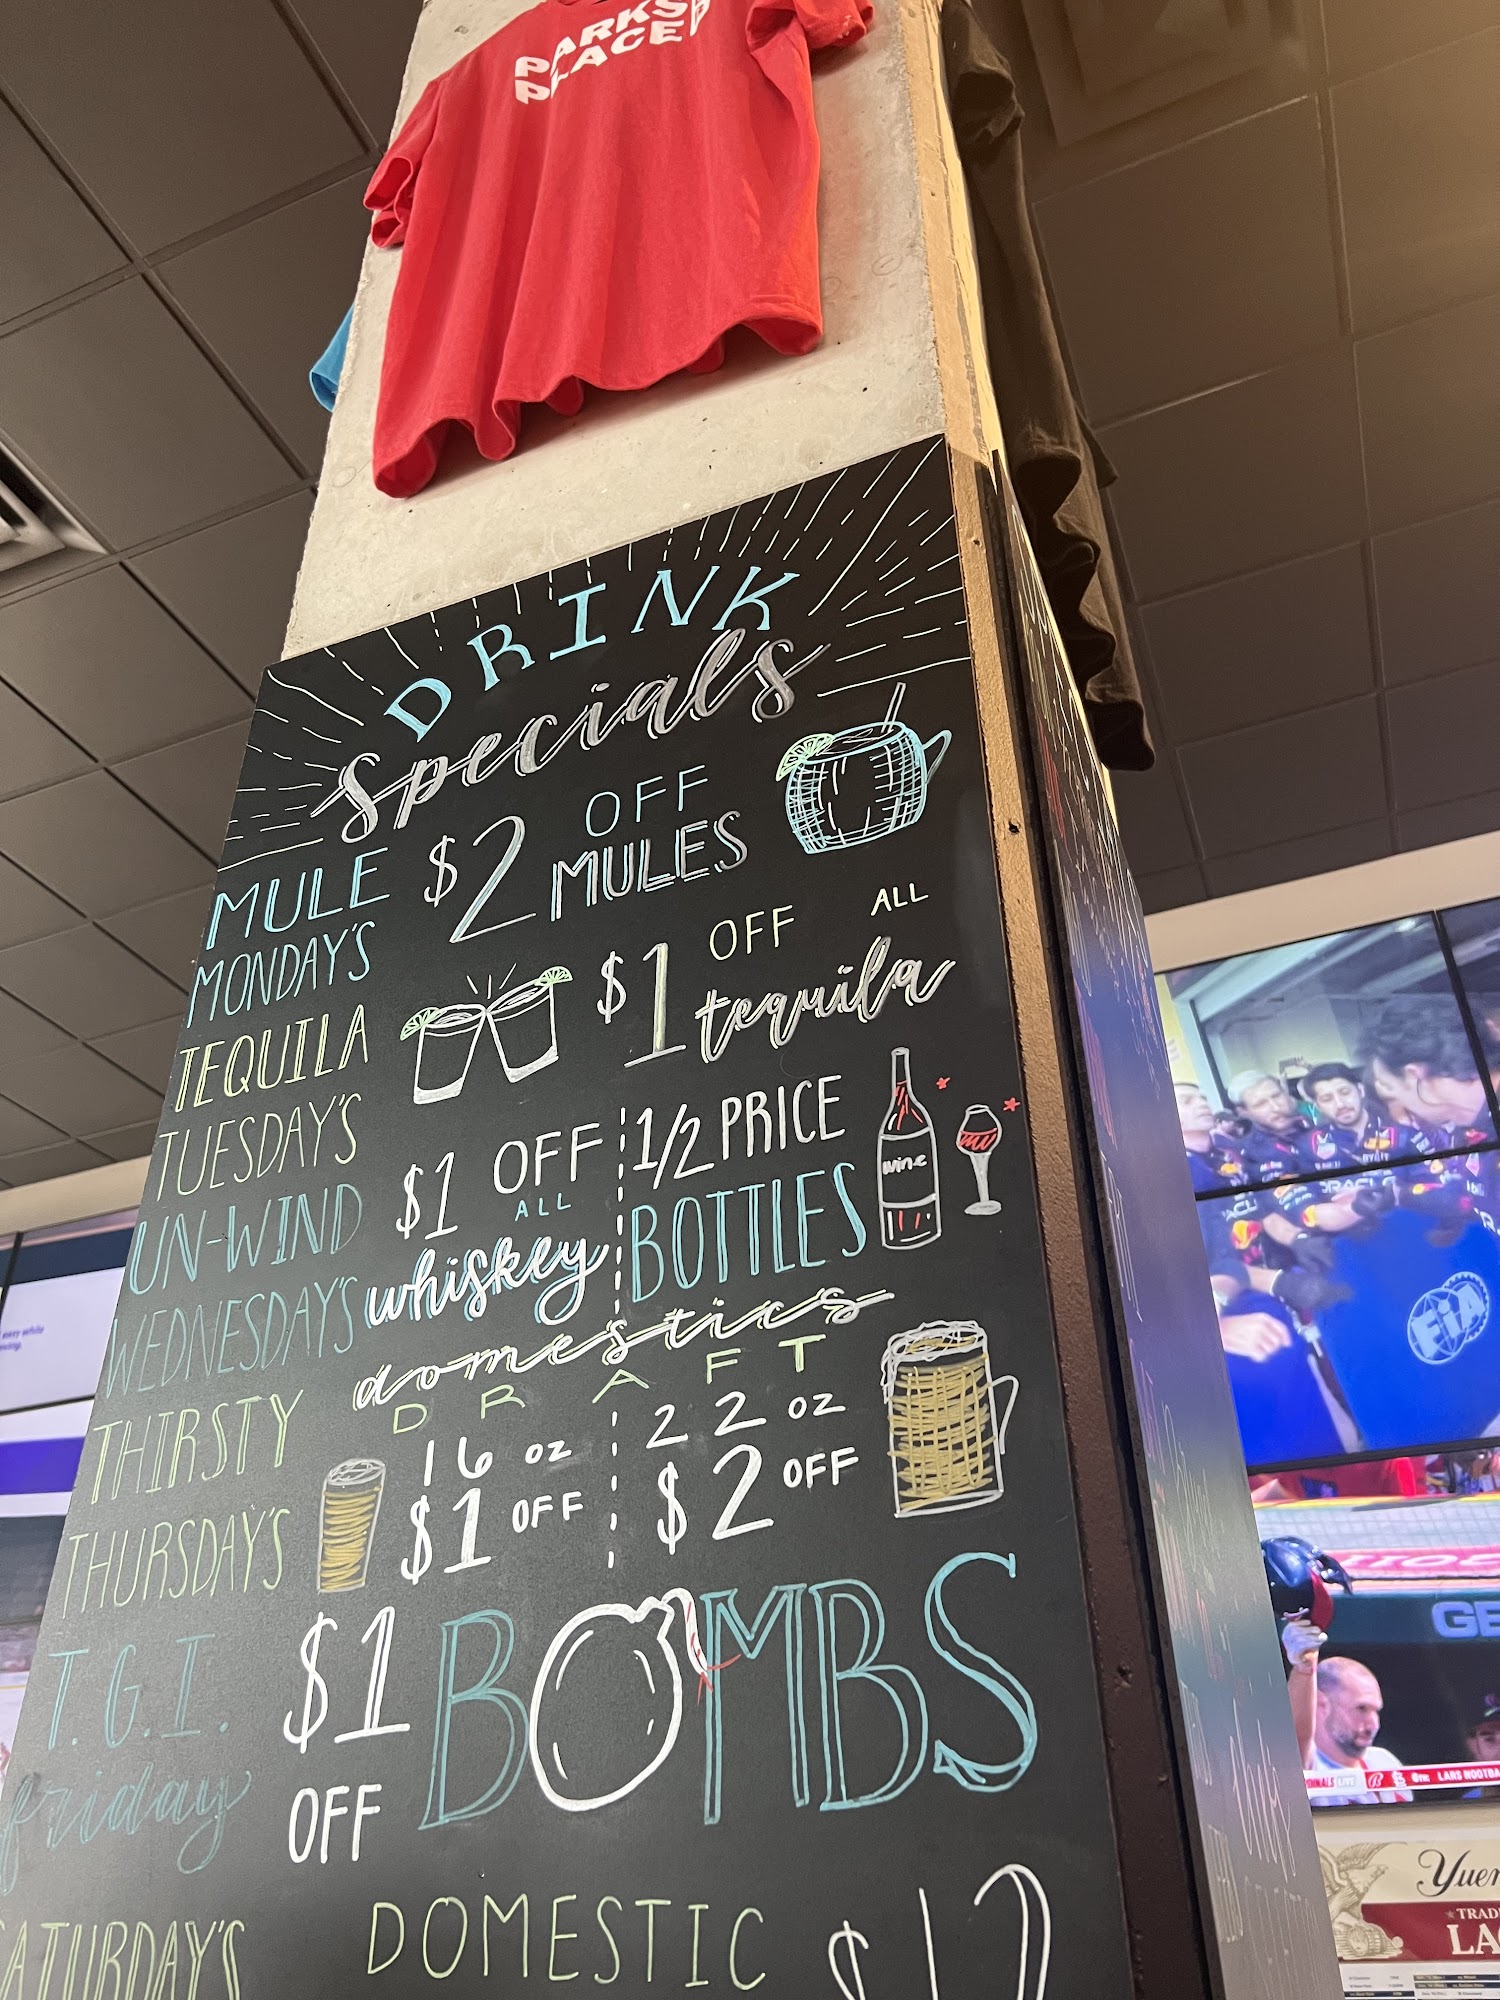 PARKS
PLACE
DRINK
Specials
MULE
MONDAY'S
$2 OFF
MULES
TEQUILA
TUESDAY'S
$1 OFF ALL
tequila
UN-WIND
WEDNESDAY'S
$1 OFF
ALL
whiskey
1/2 PRICE
BOTTLES
wine
THIRSTY
THURSDAY'S
domestics
DRAFT
16 oz
$1 OFF
22 oz
$2 OFF
T.G.I.
friday
$1
OFF
BOMBS
SATURDAY'S
DOMESTIC
$12
ORACLE
FiA
GE
LARS NOOTBA
Yuen
TRAD
LA